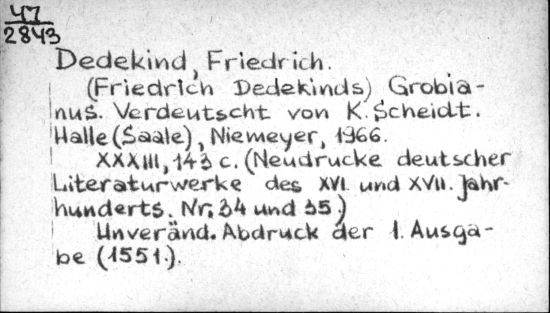 47
2843
Dedekind, Friedrich.
(Friedrich Dedekinds) Grobia-
nus. Verdeutscht von K. Scheidt.
Halle (Saale), Niemeyer, 1966.
XXXIII, 143 c. (Neudrucke deutscher
Literaturwerke des XVI. und XVII. Jahr-
hunderts. Nr. 34 und 35.)
Unveränd. Abdruck der 1. Ausga-
be (1551.).